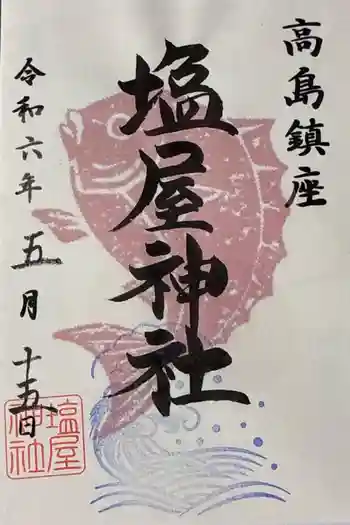 高島鎮座
塩屋神社
令和六年五月十五日
塩屋
神社